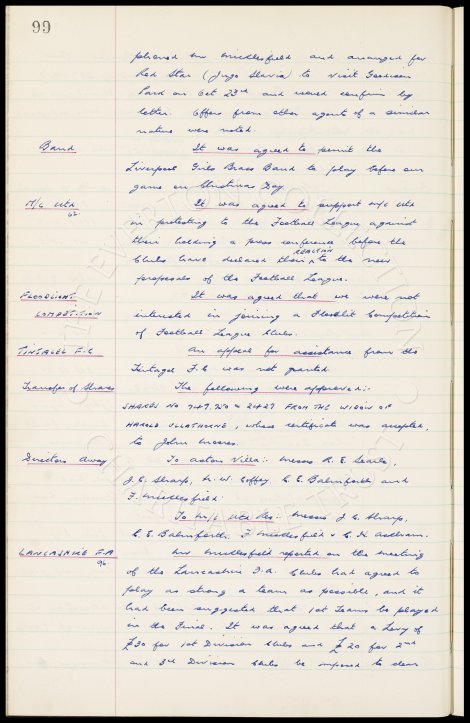 99
phoned Mr Micklesfield and arranged for
Red Star (Jugo Slavia) to visit Goodison
Park on Oct 23rd and would confirm by
letter. Offers from other agents of a similar
nature were noted.
Band It was agreed to permit the
Liverpool Girls Brass Band to play before our
game on Christmas Day.
M/C Utd It was agreed to support M/C Utd
62
in protesting to the Football League against
their holding a press conference before the
REACTION
Clubs have declared their ^ to the new
proposals of the Football League.
FLOODLIGHT It was agreed that we were not
COMPETITION interested in joining a Floodlit Competition
of Football League Clubs.
TINTAGEL F.C An appeal for assistance from the
Tintagel F.C was not granted
Transfer of Shares The following were approved:-
SHARES NO 747. 750 = 2427 FROM THE WIDOW OF
HAROLD , whose certificate was accepted,
to John
Directors Away To Aston Villa:- Messrs R. E. Searle,
J. C. Sharp, W. Coffey C. E. Balmforth and
F. Micklesfield
To M/C Utd Res:- Messrs J. C. Sharp,
C. E. Balmforth. F. Micklesfield & C. H. Askham.
LANCASHIRE F.A. Mr Micklesfield reported on the meeting
96.
of the Lancashire F.A. Clubs had agreed to
play as strong a team as possible, and it
had been suggested that 1st Teams be played
in the Final. It was agreed that a Levy of
£30 for 1st Division Clubs and £20 for 2nd
and 3rd Division Clubs be imposed to clear
THE EVERTON COLLECTION
CHARITABLE TRUST